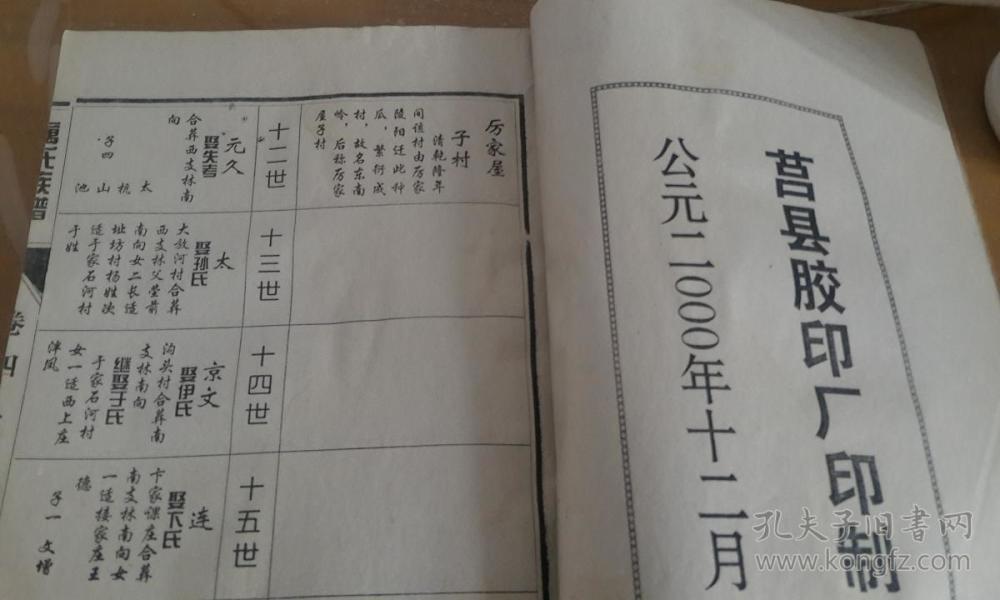 莒县胶印厂印制
公元二000年十二月
厉家屋
子村
清乾隆年
间该村由厉家
陵阳迁此种
瓜，繁衍成
村，故名东南
岭，后称厉家
屋子村
十二世
元久
娶失考
合葬西支林南
向
子四
太
杭
山
池
十三世
太
娶孙氏
大放河村合葬
西支林父茔前
南向女二长适
址坊村杨姓次
适于家石河村
于姓
十四世
京文
娶伊氏
沟头村合葬南
支林南向
继娶于氏
于家石河村
女一适西上庄
十五世
连
娶卞氏
卞家课庄合葬
南支林南向女
一适接家庄王
德
子一 文增
氏族谱
卷四
孔夫子旧书网
www.kongfz.com